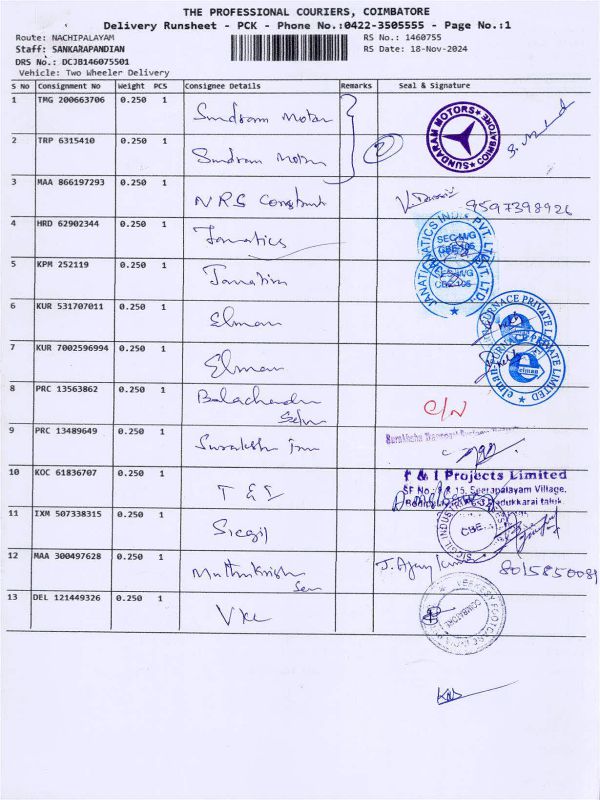 THE PROFESSIONAL COURIERS, COIMBATORE
Delivery Runsheet - PCK - Phone No.:0422-3505555 - Page No.:1
Route: NACHIPALAYAM RS No.: 1460755
Staff: SANKARAPANDIAN RS Date: 18-Nov-2024
DRS No.: DCJB146075501
Vehicle: Two Wheeler Delivery
S No Consignment No Weight PCS Consignee Details Remarks Seal & Signature
1 TMG 200663706 0.250 1 Sundram Motor
SUNDARAM MOTORS COIMBATORE
2 TRP 6315410 0.250 1 Sundram Motor 2
3 MAA 866197293 0.250 1 NRS Construt 9597398926
4 HRD 62902344 0.250 1 Janatics
JANATICS INDIA PVT. LTD.
SEC-M/G
CBE-105
5 KPM 252119 0.250 1 Janatics
SEC-M/G
CBE-105
6 KUR 531707011 0.250 1 Elman
FURNACE PRIVATE LIMITED
7 KUR 7002596994 0.250 1 Elman
elman FURNACE PRIVATE LIMITED
elman
8 PRC 13563862 0.250 1 Balachandr C/N
Selvn
9 PRC 13489649 0.250 1 Suraksh Tran
Suraksha Transport
10 KOC 61836707 0.250 1 T & I
T & I Projects Limited
15, Seerapalayam Village,
Madukkarai taluk.
11 IXM 507338315 0.250 1 Sicgil
SICGIL INDUSTRIAL GASES
CBE
12 MAA 300497628 0.250 1 Muthukrish J. Ajay Kumar 8015850089
Sen
13 DEL 121449326 0.250 1 VKC
VEEKESY FOOTCARE
COIMBATORE